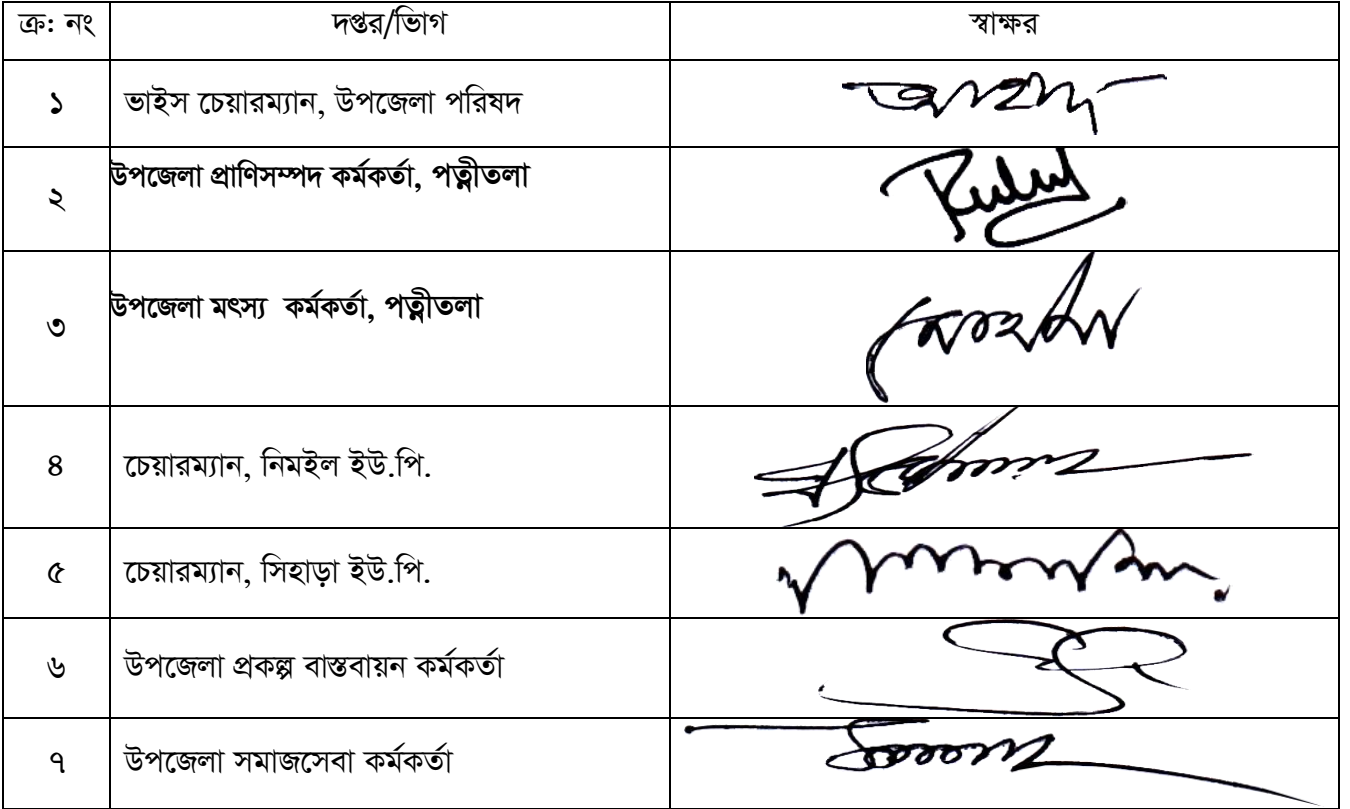 ক্র: নং দপ্তর/ভিাগ স্বাক্ষর
১ ভাইস চেয়ারম্যান, উপজেলা পরিষদ
২ উপজেলা প্রাণিসম্পদ কর্মকর্তা, পত্নীতলা
৩ উপজেলা মৎস্য কর্মকর্তা, পত্নীতলা
৪ চেয়ারম্যান, নিমইল ইউ.পি.
৫ চেয়ারম্যান, সিহাড়া ইউ.পি.
৬ উপজেলা প্রকল্প বাস্তবায়ন কর্মকর্তা
৭ উপজেলা সমাজসেবা কর্মকর্তা